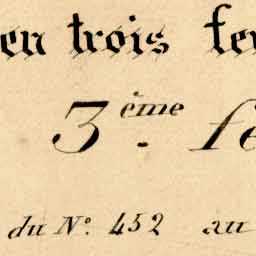 en trois feu
3ème fe
du N° 452 au